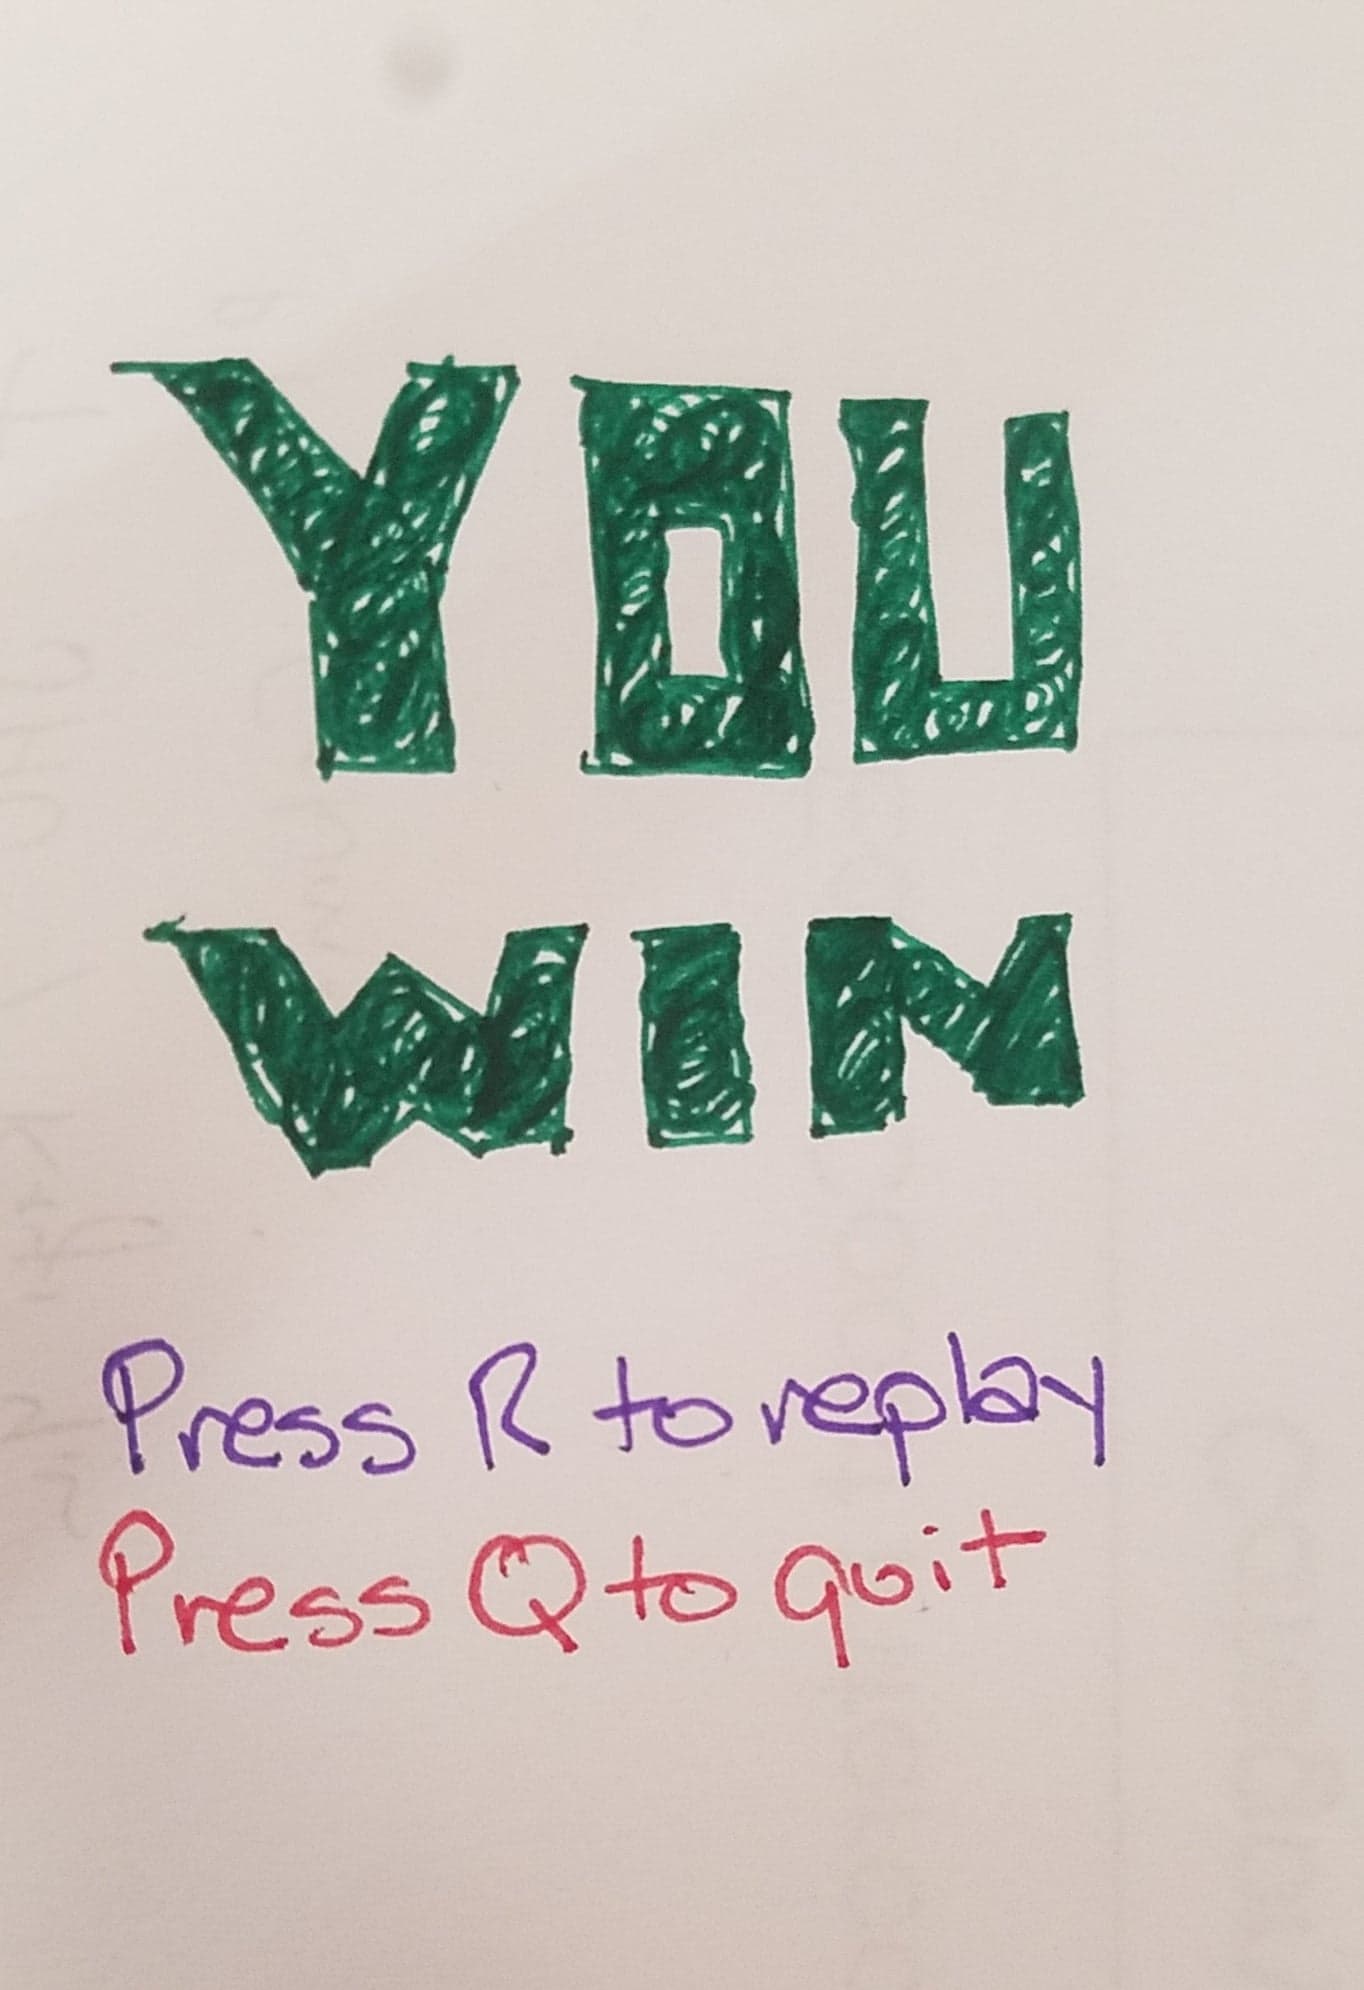 YOU
WIN
Press R to replay
Press Q to quit